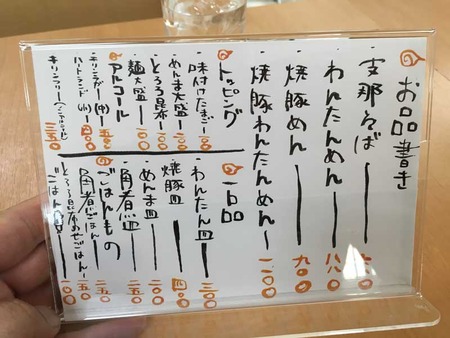 お品書き
支那そば
わんたんめん 八〇〇
焼豚めん 九〇〇
焼豚わんたんめん 一一〇〇
トッピング
味付けたまご 一〇〇
めんま大盛 二〇〇
とろろ昆布 一〇〇
麺大盛 一〇〇
アルコール
キリンラガー(中) 五〇〇
ハートランド(小) 四〇〇
キリンフリー(ノンアルコール) 三五〇
一品
わんたん皿 三〇〇
焼豚皿 四〇〇
めんま皿 二〇〇
角煮皿 二五〇
ごはんもの
角煮ごはん 二五〇
とろろ昆布めしごはん 二五〇
ごはん 一〇〇